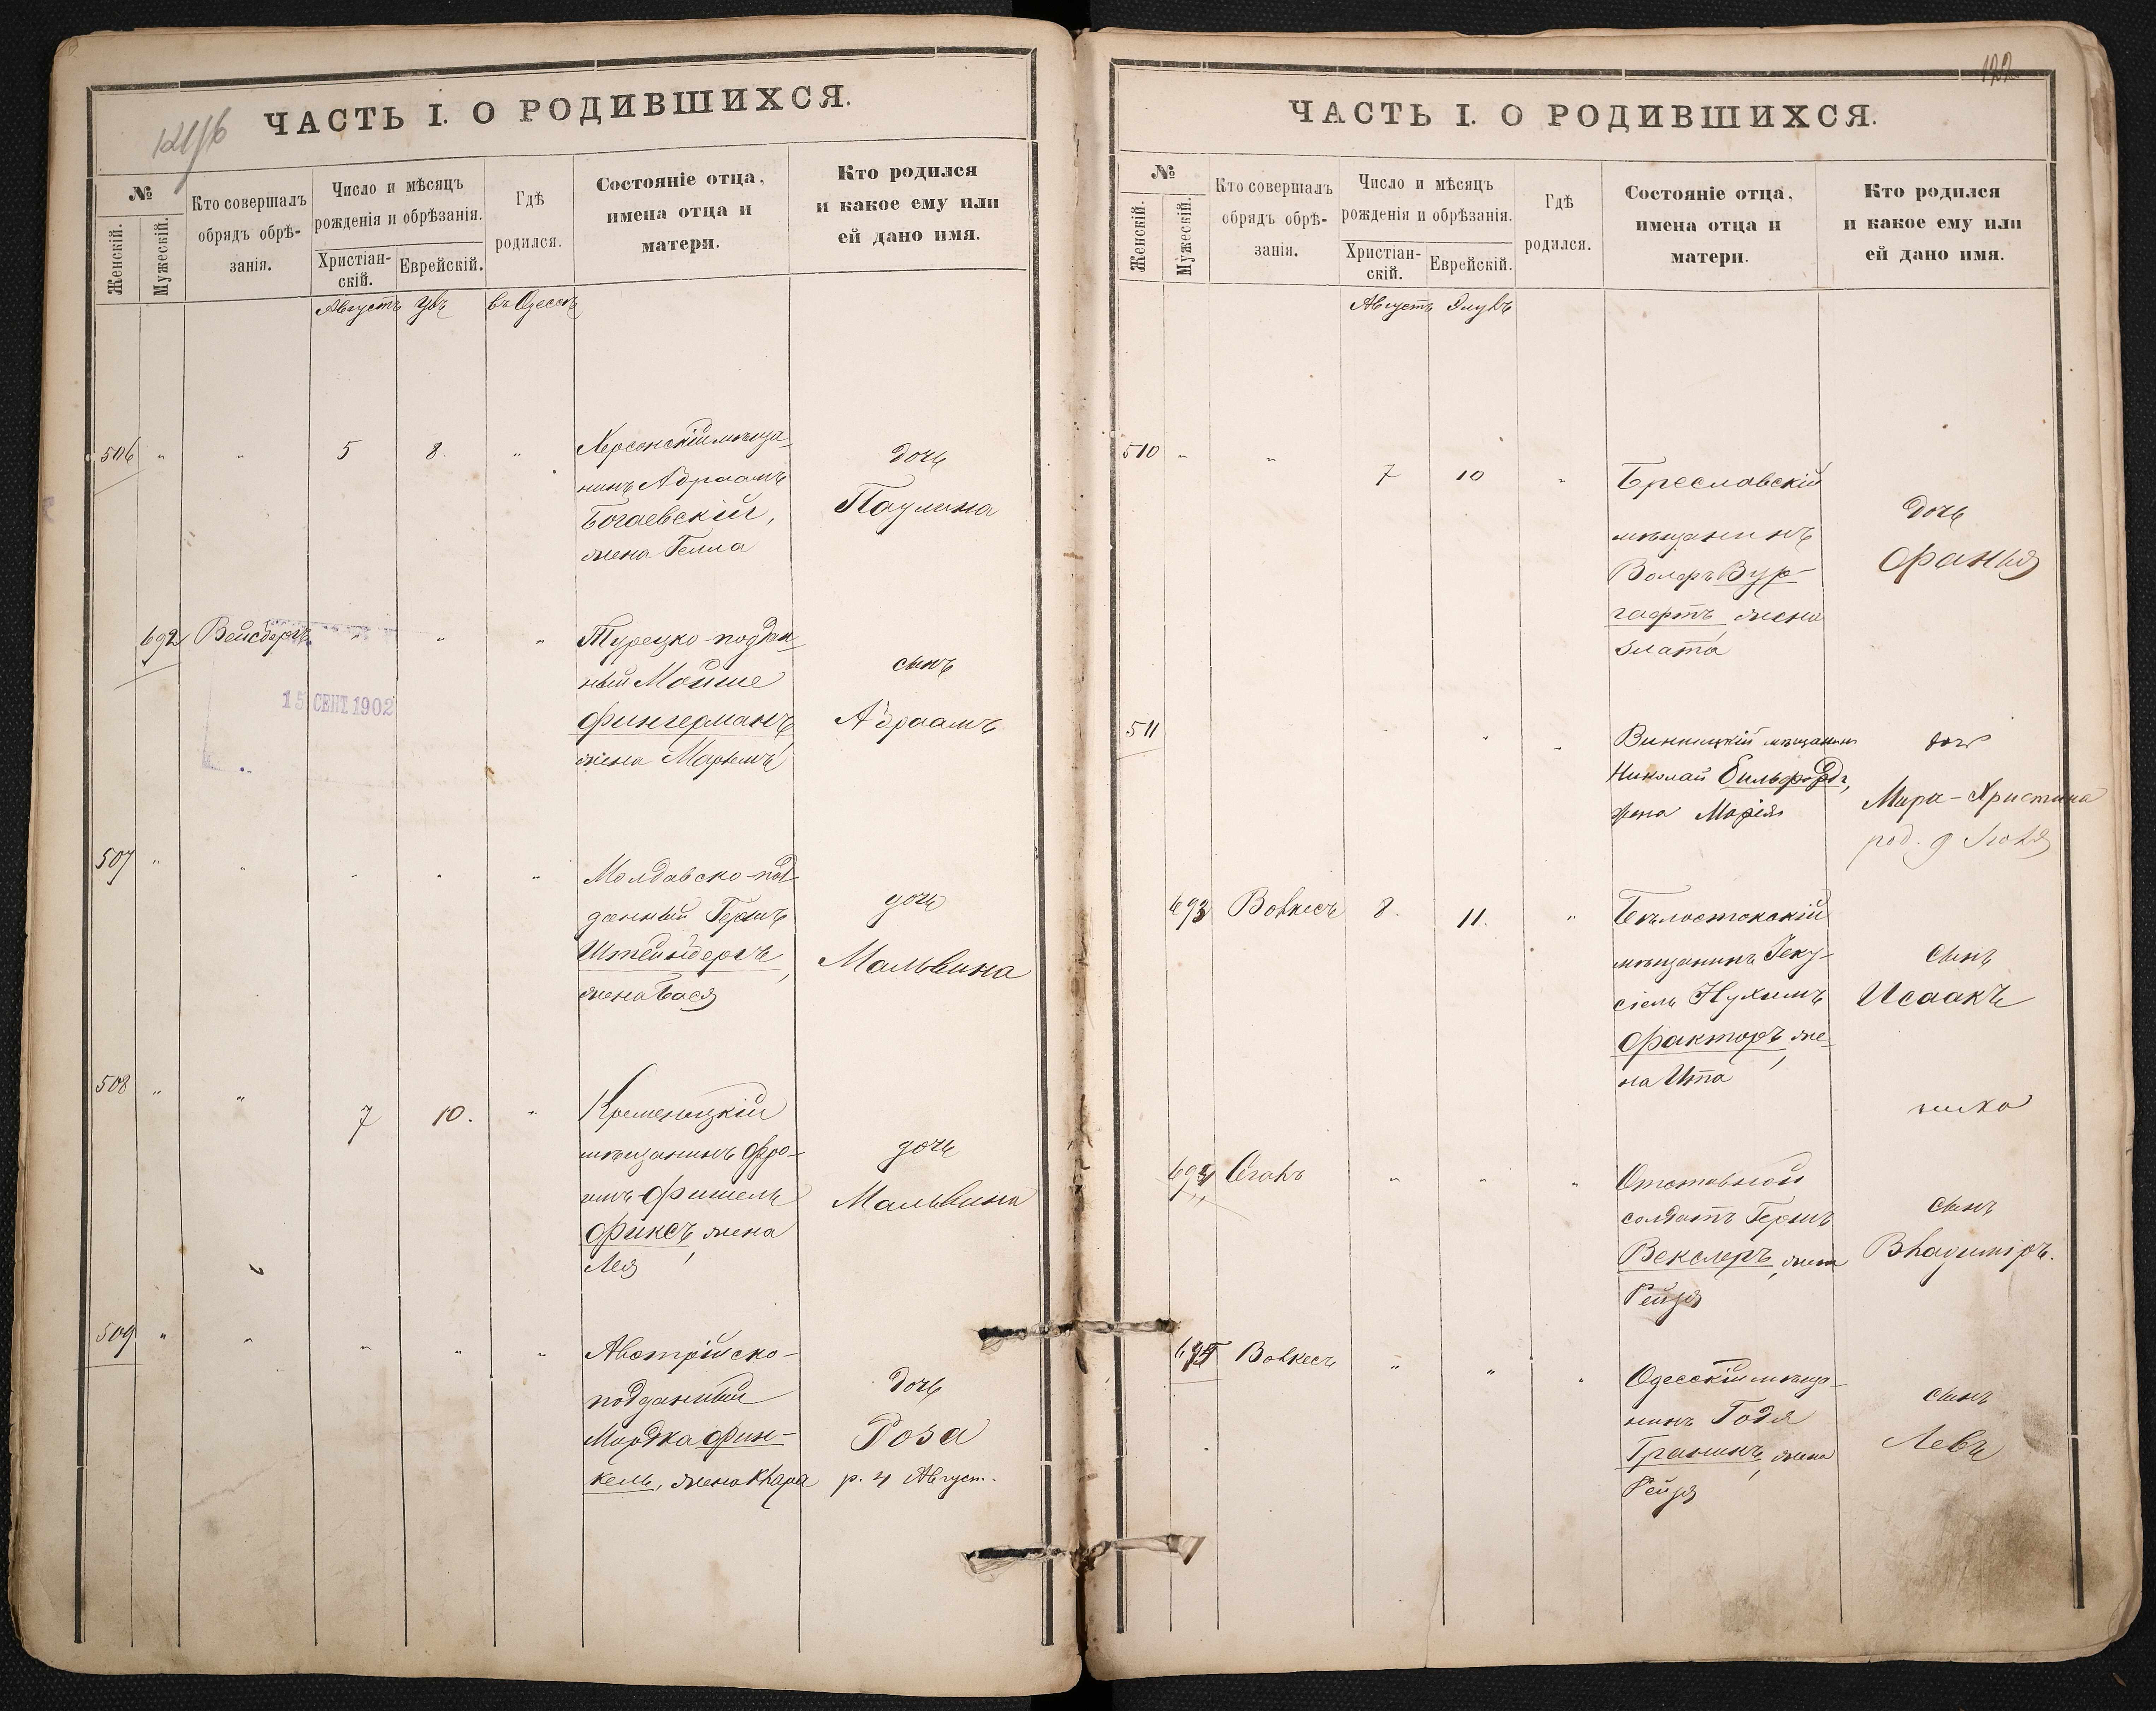 ЧАСТЬ I. О РОДИВШИХСЯ.
№
Женскій.
Мужескій.
Кто совершалъ
обрядъ обрѣ-
занія.
Число и мѣсяцъ
рожденія и обрѣзанія.
Христіан-
скій.
Еврейскій.
Гдѣ
родился.
Состояніе отца,
имена отца и
матери.
Кто родился
и какое ему или
ей дано имя.
Августъ
въ Одессѣ
506 " " 5 8. "
Херсонскій мѣща-
нинъ Абраамъ
Богаевскій,
жена Гемма
дочь
Паулина
692 Вейсбергъ " " "
Турецко-поддан-
ный Мойше
Фингерманъ
жена Марьемъ
сынъ
Абраамъ
15 СЕНТ. 1902
507 " " " " "
Молдавско-под-
данный Гершъ
Штейнбергъ,
жена Бася
дочь
Мальвина
508 " " 7 10. "
Кременецкій
мѣщанинъ Фро-
имъ-Фишель
Фиксъ, жена
Лея
дочь
Мальвина
509 " " " " "
Австрійско-
подданный
Мордка Фин-
кель, жена Клара
дочь
Роза
р. 4 Август.
122
ЧАСТЬ I. О РОДИВШИХСЯ.
№
Женскій.
Мужескій.
Кто совершалъ
обрядъ обрѣ-
занія.
Число и мѣсяцъ
рожденія и обрѣзанія.
Христіан-
скій.
Еврейскій.
Гдѣ
родился.
Состояніе отца,
имена отца и
матери.
Кто родился
и какое ему или
ей дано имя.
Августъ Элулъ
510 " " 7 10 "
Бреславскій
мѣщанинъ
Вольфъ Вур-
гафтъ, жена
Злата
дочь
Франья
511 " " "
Винницкій мѣщанинъ
Николай
жена Марія
дочь
Мари-Христина
род. 9 Іюля
693 Волкесъ 8. 11. "
Бѣлостокскій
мѣщанинъ Іеку-
сіель Нухимъ
Факторъ, же-
на Ита
сынъ
Исаакъ
694 Сегалъ " " "
Отставной
солдатъ Гершъ
Векслеръ, жена
Рейзя
сынъ
Владиміръ.
695 Волкесъ " " "
Одесскій мѣща-
нинъ Годя
Граникъ, жена
Рейзя
сынъ
Левъ